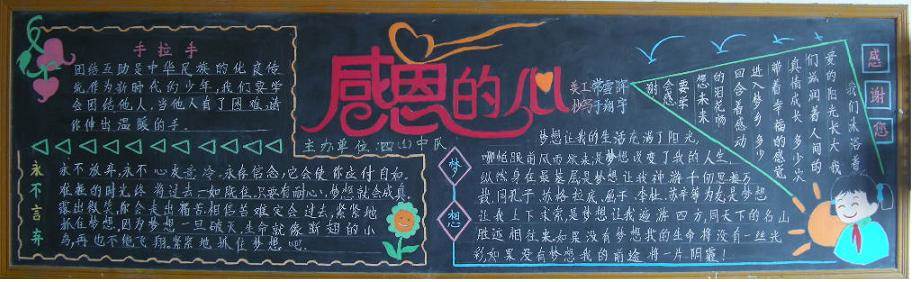 手拉手
团结互助是中华民族的优良传
统作为新时代的少年,我们要学
会团结他人,当他人有了困难,请
你伸出温暖的手.
永不言弃
永不放弃,永不心灰意冷.永存信念,它会使你应付自如.
难熬的时光终将过去一如既往.只要有耐心,梦想就会成真.
露出微笑,你会走出痛苦.相信苦难定会过去,紧紧地
抓住梦想,因为梦想一旦破灭,生命就像断翅的小
鸟,再也不能飞翔.紧紧地抓住梦想吧
感恩的心
主办单位:四(1)中队
美工
抄写于翔宇
梦想
梦想让我的生活充满了阳光,
哪怕眼前风雨欲来,是梦想改变了我的人生.
纵然身在最底层是梦想让我神游千仞思接万
载.同孔子、苏格拉底、屈子、李杜、苏辛等为友,是梦想
让我上下求索是梦想让我遍游四方,同天下的名山
胜迹相往来.如果没有梦想我的生命将没有一丝光
彩.如果没有梦想我的前途将一片阴霾!
感谢您
我们沐浴着
爱的阳光长大我
们滋润着人间的
真情成长多少次
带着幸福的感觉
进入梦乡多少
回含着感动
的泪花畅
想未来
要学
会感
谢